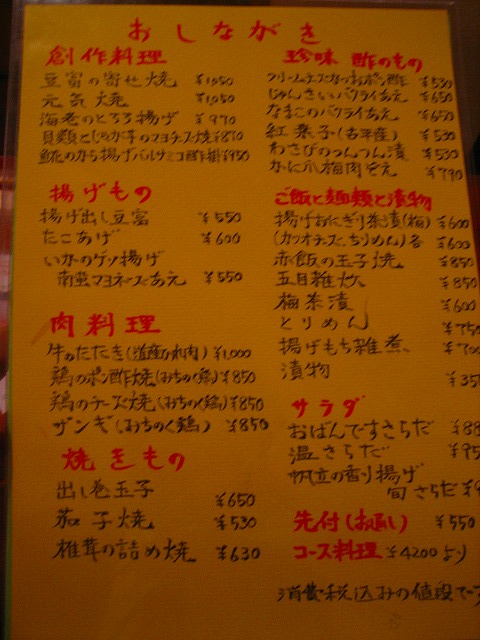 おしながき
創作料理
豆富の寄せ焼 ¥1,050
元気焼 ¥1,050
海老のとろろ揚げ ¥970
貝類とじゃが芋のマヨチーズ焼 ¥870
のから揚げバルサミコ酢掛 ¥950
揚げもの
揚げ出し豆富 ¥550
たこあげ ¥600
いかのゲソ揚げ
南蛮マヨネーズあえ ¥550
肉料理
牛のたたき(道産ひれ肉) ¥1,000
鶏のポン酢焼(みちのく鶏) ¥850
鶏のチーズ焼(みちのく鶏) ¥850
ザンギ(みちのく鶏) ¥850
焼きもの
出し巻玉子 ¥650
茄子焼 ¥530
椎茸の詰め焼 ¥630
珍味 酢のもの
クリームチーズ ¥530
じゅんさいバクライあえ ¥650
なまこのバクライあえ ¥650
紅葉子(古平産) ¥530
わさびのつんつん漬 ¥530
かに爪梅肉ぞえ ¥790
ご飯と麺類と漬物
揚げおにぎり茶漬(梅) ¥600
(カツオチーズ、ちりめん)各 ¥600
赤飯の玉子焼 ¥850
五目雑炊 ¥850
梅茶漬 ¥600
とりめん ¥750
揚げもち雑煮 ¥700
漬物 ¥350
サラダ
おばんですさらだ ¥88
温さらだ ¥95
帆立の香り揚げ
旬さらだ
先付(お通し) ¥550
コース料理 ¥4200より
消費税込みの値段です